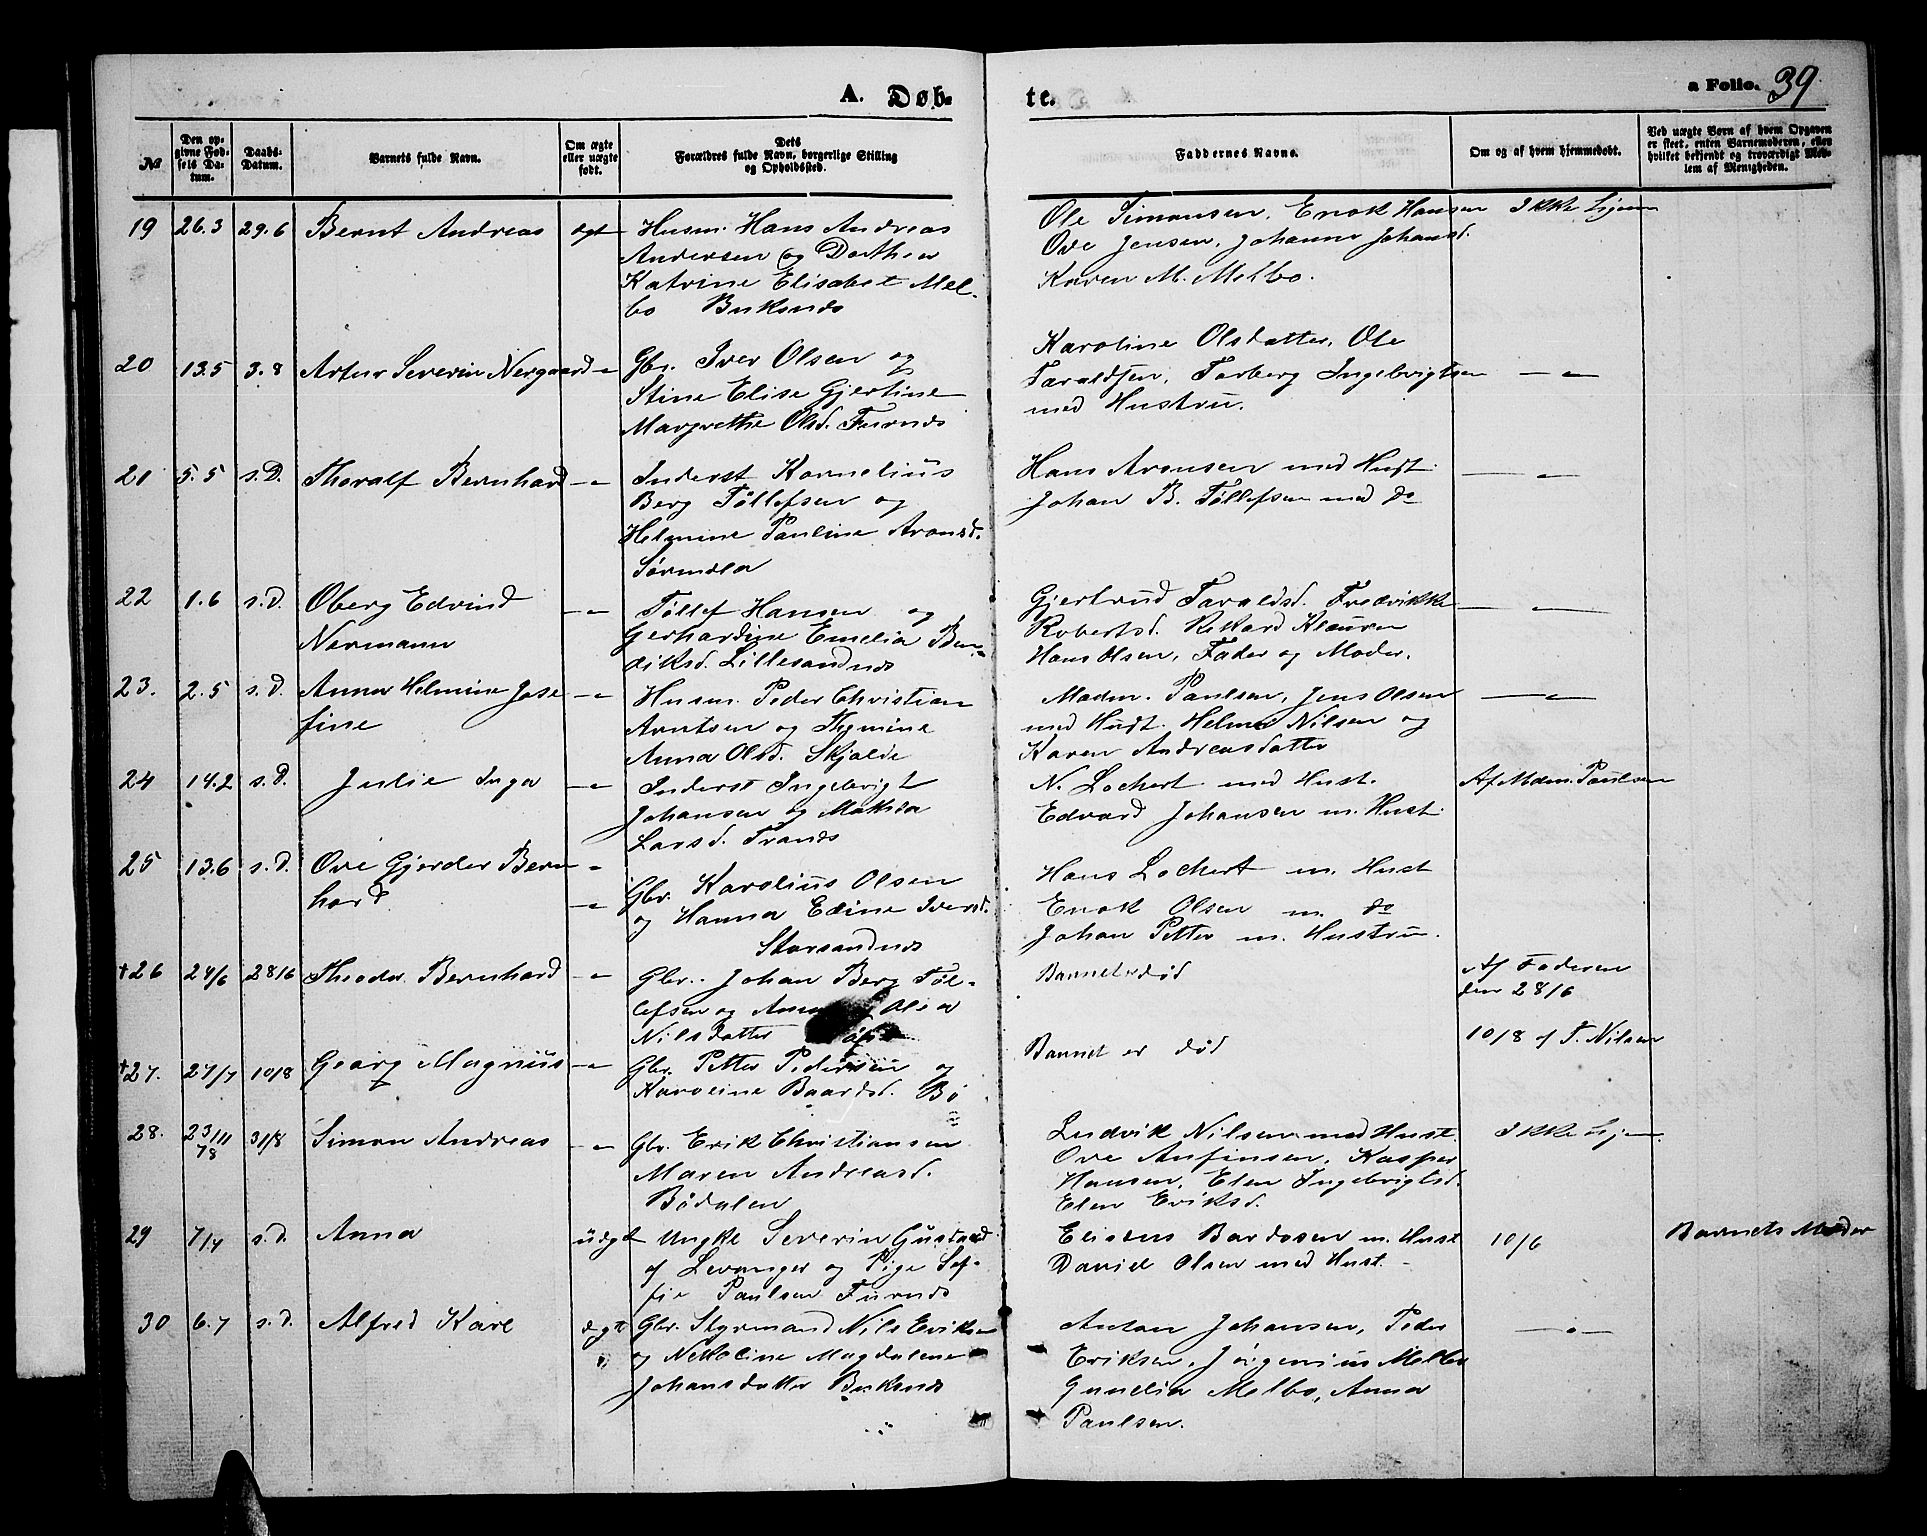 A. Døb-
te.
a Folio. 39
№
Den op-
givne Fød-
sels Da-
tum.
Daabs-
Datum.
Barnets fulde Navn.
Om ægte
eller uægte
født.
Dets
Forældres fulde Navn, borgerlige Stilling
og Opholdssted.
Faddernes Navne.
Om og af hvem hjemmedøbt.
Ved uægte Børn af hvem Opgaven
er skeet, enten Barnemoderen, eller
hvilket bekjendt og troværdigt Med-
lem af Menigheden.
19 26.3 29.6 Bernt Andreas ægt Husm. Hans Andreas
Andersen og Dorthea
Katrine Elisabet Mel-
bo Buksnds
Ole Simonsen, Enok Hansen Ikke hjem
Ove Jensen, Johanna Johansd.
Karen M. Melbo.
20 13.5 3.8 Artur Severin Nergaard -"- Gbr. Iver Olsen og
Stine Elise Gjertine
Margrethe Olsd. Furnds
Karoline Olsdatter, Ole
Taraldsen, Torberg Ingebrigtsen -"-
med Hustru.
21 5.5 s.D. Thoralf Bernhard -"- Inderst Kornelius
Berg Tøllefsen og
Helmine Pauline Aronsd.
Hans Aronsen med Hust. -"-
Johan B. Tøllefsen med do
22 1.6 s.d. Oberg Edvind
Normann -"- Tøllef Hansen og
Gerhardine Emelia Ben-
diksd. Lillesandnes
Gjertrud Taraldsd. Fredrikke -"-
Robertsd. Rikard Klausen
Hans Olsen, Fader og Moder.
23. 2.5 s.d. Anna Helmine Jose
fine -"- Husm. Peder Christian
Arntsen og Thymine
Anna Olsd. Skjolde
Madm. Paulsen, Jens Olsen -"-
med Hust. Helma Nilsen og
Karen Andreasdatter
24 14.2 s.d. Julie Inga -"- Inderst Ingebrigt
Johansen og Mathia
Larsd. Trands
N. Lochert med Hust. Af Mdm. Paulsen
Edvard Johansen m. Hust.
25 13.6 s.d. Ove Gjerder Bern
hard -"- Gbr. Karolius Olsen
og Hanna Edine Iversd.
Storsandnes
Hans Lochert m. Hust
Enok Olsen m. do
Johan Petter m. Hustru.
†26 24/6 28/6 Theodor Bernhard -"- Gbr. Johan Berg Tøl-
lefsen og Anna Olea
Nilsdatter
Barnet er død
Af Faderen
den 28/6
†27. 27/7 10/8 Georg Magnus -"- Gbr. Petter Pedersen og
Karoline Baardsd. Bø
Barnet er død
10/8 af T. Nilsen
28. 23/11 78 31/8 Simon Andreas -"- Gbr. Erik Christiansen
Maren Andreasd.
Bødalen
Ludvik Nilsen med Hust. Ikke hjem.
Ove Anfinsen, Kasper
Hansen, Elen Ingebrigtsd.
Elen Eriksd.
29 7/4 s.d. Anna uægt Ungk. Severin Gustavs.
af Levanger og Pige Sof-
fie Paulsen Furnds
Eliseus Bardosen m. Hust 10/6 Barnets Moder
David Olsen med Hust.
30 6.7 s.d. Alfred Karl ægt Gbr. Styrmand Nils Eriksen
og Nekoline Magdalene
Johansdatter Buksnds
Antan Johansen, Peder -"-
Eriksen, Jørgenius Melbo
Gunelia Melbo, Anna
Paulsen.